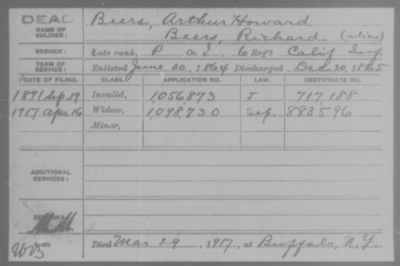 DEAL
NAME OF SOLDIER:
Beers, Arthur Howard
Beers, Richard (alias)
SERVICE:
Late rank, P Co. I, 6 Reg't Calif Inf
TERM OF SERVICE:
Enlisted June 20, 1864 Discharged Dec 20, 1865
DATE OF FILING. CLASS. APPLICATION NO. LAW. CERTIFICATE NO.
1891 Sep 19 Invalid, 1,056,873 J 717,188
1917 Apr 16 Widow, 1,098,730 Sep. 883596
Minor,
ADDITIONAL SERVICES:
Died Mar 29, 1917, at Buffalo, N.Y.